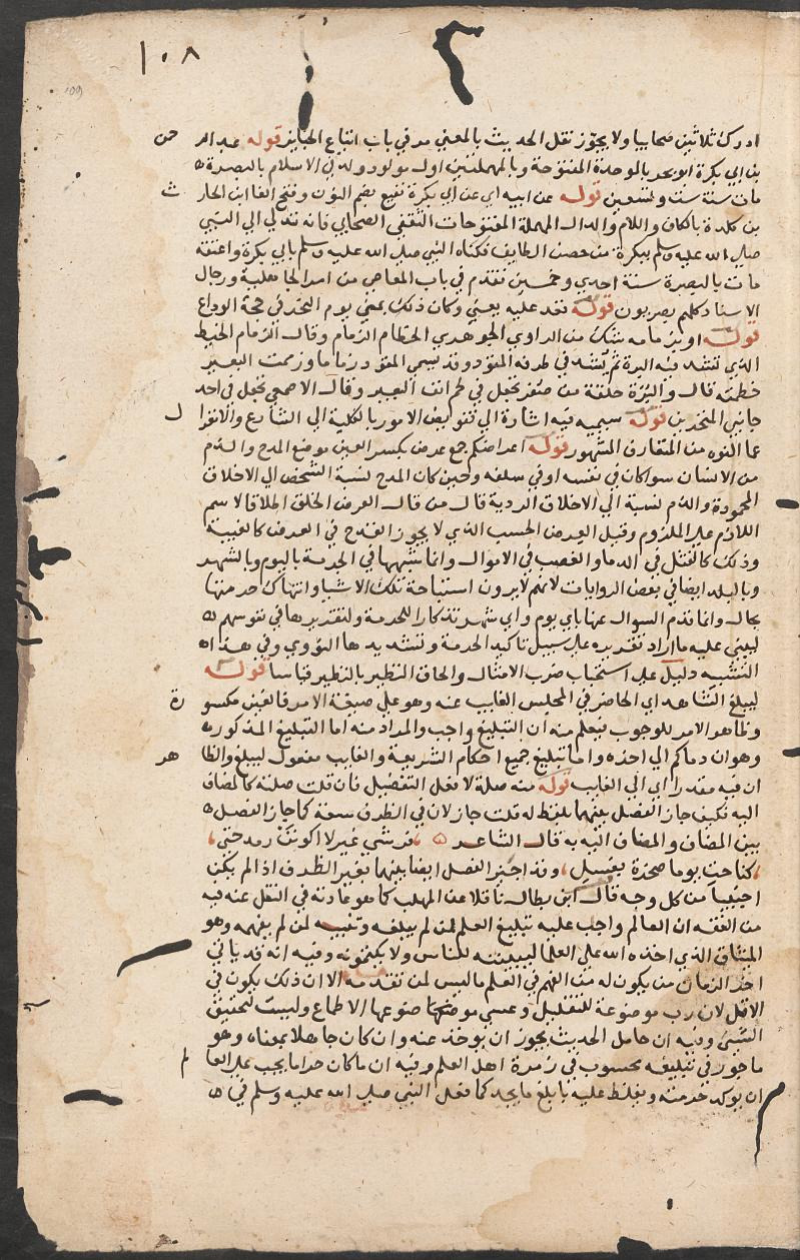 ١٠٨
ادرك ثلاثين صحابيا ولا يجوز نقل الحديث بالمعني مر في باب اتباع الجنايز قوله عبد الر حمن
بن ابي بكرة ابو بحر بالموحدة المفتوحة وبالمهملتين اول مولود ولد في الاسلام بالبصرة
مات سنة ست وتسعين قوله عن ابيه اي عن ابي بكرة نفيع بضم النون وفتح الفا ابن الحار ث
بن كلدة بالكاف واللام والدال المهملة المفتوحات الثقفي الصحابي فانه تدلي الي النبي
صلي الله عليه وسلم ببكرة من حصن الطايف فكناه النبي صلي الله عليه وسلم بابي بكرة واعتقه
مات بالبصرة سنة احدي وخمسين تقدم في باب المعاصي من امر الجاهلية ورجال
الاسناد كلهم بصريون قوله قعد عليه يعني وكان ذلك بمني يوم النحر في حجة الوداع
قوله او بزمامه شك من الراوي الجوهري الخطام الزمام وقال الزمام الخيط
الذي تشد فيه البرة ثم يشد في طرفه المقود وقد يسمي المقود زماما وزممت البعير
خطمته قال والبرة حلقة من صفر تجعل في لحم انف البعير وقال الاصمعي تجعل في احد
جانبي المنخرين قوله سيسميه فيه اشارة الي تفويض الامور بالكلية الي الشارع والانعزا ل
عما الفوه من المتعارف المشهور قوله اعراضكم جمع عرض بكسر العين موضع المدح والذم
من الانسان سوا كان في نفسه او في سلفه وحين كان المدح نسبة الشخص الي الاخلاق
المحمودة والذم نسبة الي الاخلاق الردية قال من قال العرض الخلق اطلاقا لاسم
اللازم علي الملزوم وقيل العرض الحسب الذي لا يجوز القدح في العرض كالغيبة
وذلك كالقتل في الدما والغصب في الاموال وانما شبهها في الحرمة باليوم وبالشهر
وبالبلد ايضا في بعض الروايات لانهم لا يرون استباحة تلك الاشيا وانتهاك حرمتها
بحال وانما قدم السوال عنها باي يوم واي شهر تذكارا للحرمة ولتقريرها في نفوسهم
ليبني عليه ما اراد تقريره علي سبيل تاكيد الحرمة وتشديدها النووي وفي هذا
التشبيه دليل علي استحباب ضرب الامثال والحاق النظير بالنظير قياسا قوله
ليبلغ الشاهد اي الحاضر في المجلس الغايب عنه وهو علي صيغة الامر فالغين مكسو رة
وظاهر الامر للوجوب فيعلم منه ان التبليغ واجب والمراد منه اما التبليغ المذكور
وهو ان دماكم الي اخره واما تبليغ جميع احكام الشريعة والغايب مفعول ليبلغ والظا هر
ان فيه مقدرا اي الي الغايب قوله منه صلة لافعل التفضيل فان قلت صلته كالمضاف
اليه فكيف جاز الفصل بينهما بلفظ له قلت جاز لان في الظرف سعة كما جاز الفصل
بين المضاف والمضاف اليه به قال الشاعر فرشني بخير لا اكونن ومدحتي
كناحت يوما صخرة بعسيل وقد اجيز الفصل ايضا بينهما بغير الظرف اذا لم يكن
اجنبيا من كل وجه قال ابن بطال ناقلا عن المهلب كما هو عادته في النقل عنه فيه
من الفقه ان العالم واجب عليه تبليغ العلم لمن لم يبلغه وتفهيمه لمن لم يفهمه وهو
الميثاق الذي اخذه الله علي العلما ليبيننه للناس ولا يكتمونه وفيه انه قد ياتي في
اخر الزمان من يكون له من الفهم في العلم ما ليس لمن تقدمه الا ان ذلك يكون في
الاقل لان رب موضوعة للتقليل وعسي موضوعها الاطماع وليست لتحقيق
الشي وفيه ان حامل الحديث يجوز ان يوخذ عنه وان كان جاهلا بمعناه وهو
ماجور في تبليغه محسوب في زمرة اهل العلم وفيه ان ما كان حراما يجب علي العا لم
ان يوكد حرمته ويغلظ عليه بابلغ ما يجد كما فعل النبي صلي الله عليه وسلم في